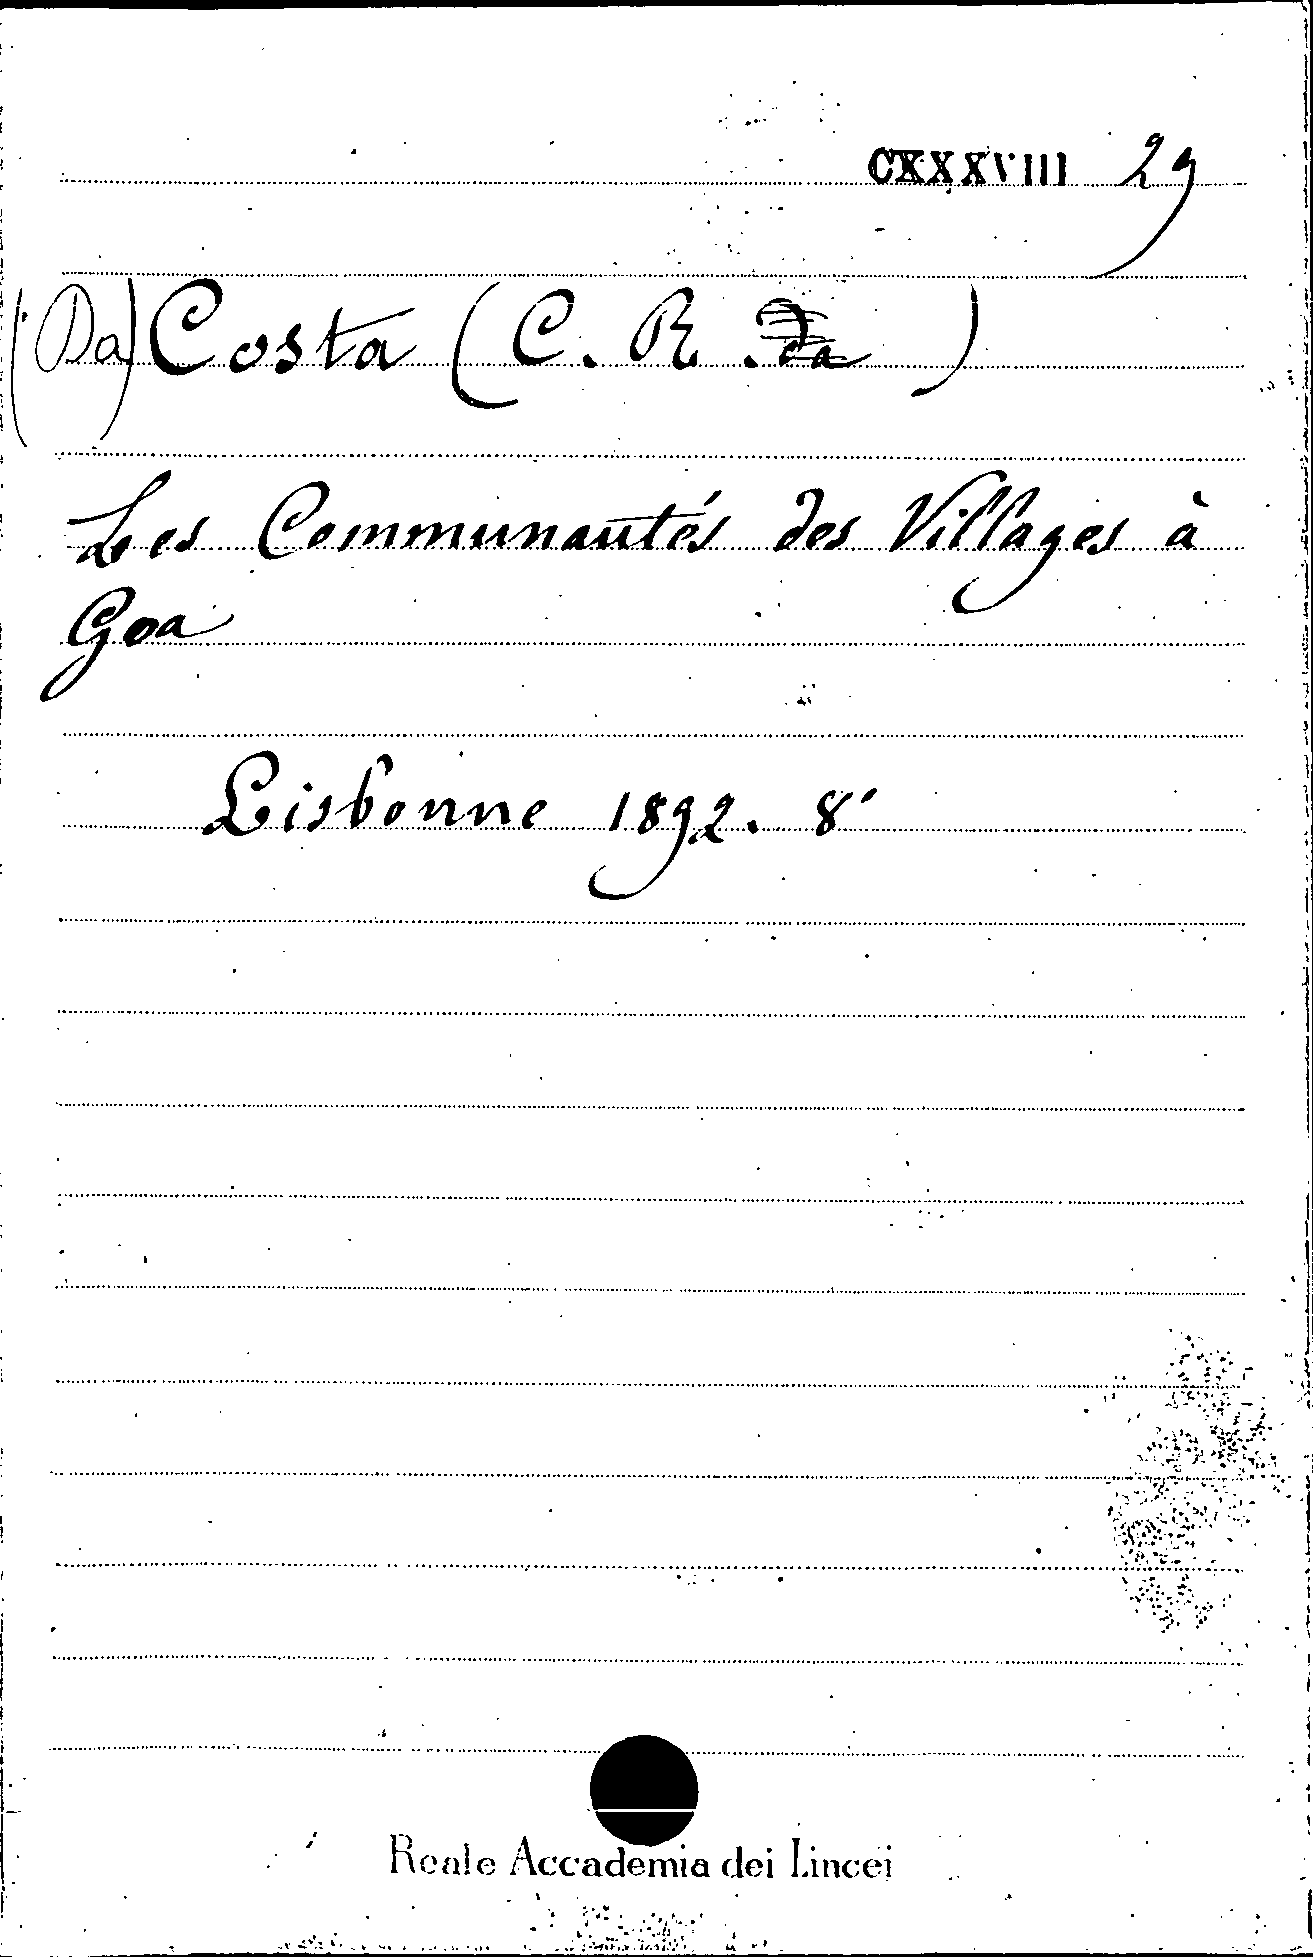 CXXXVIII 29
(Da) Costa (C. R. da)
Les Communautés des Villages à
Goa
Lisbonne 1892. 8°
Reale Accademia dei Lincei